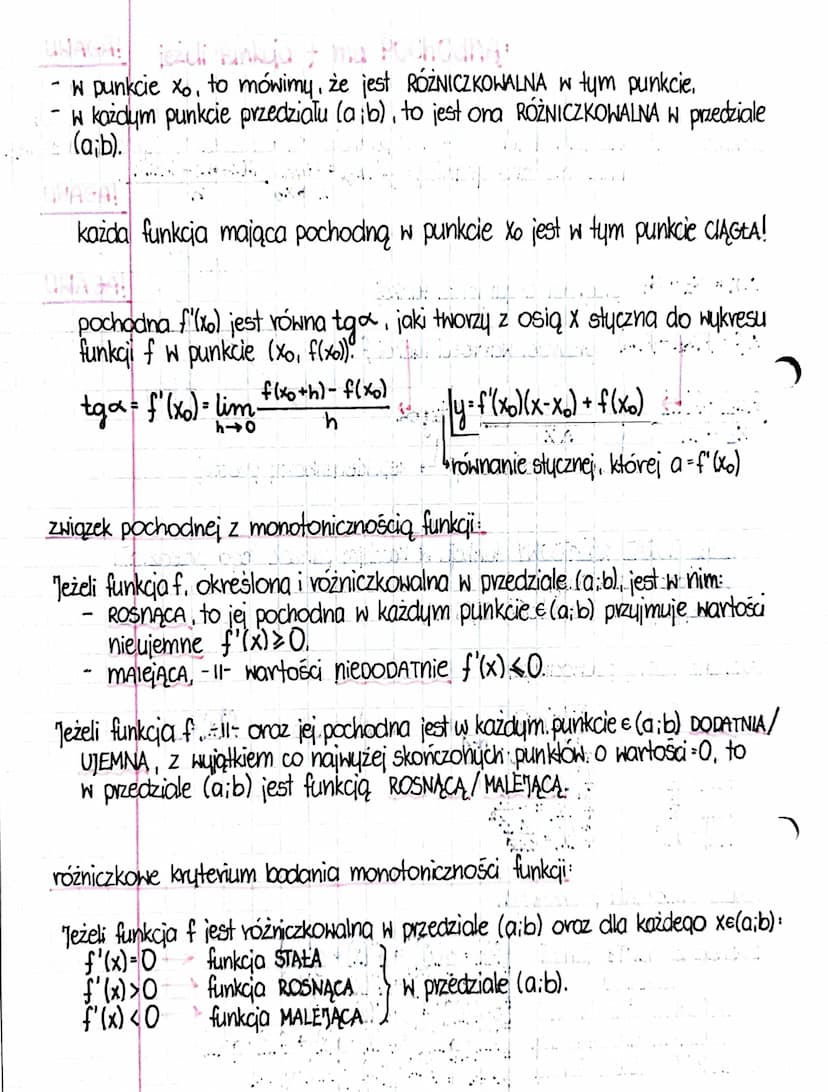 UWAGA! jeżeli funkcja f ma POCHODNĄ:
- w punkcie x₀, to mówimy, że jest RÓŻNICZKOWALNA w tym punkcie,
- w każdym punkcie przedziału (a;b), to jest ona RÓŻNICZKOWALNA w przedziale
(a;b).
UWAGA!
każda funkcja mająca pochodną w punkcie x₀ jest w tym punkcie CIĄGŁA!
UWAGA!
pochodna f'(x₀) jest równa tgα, jaki tworzy z osią X styczna do wykresu
funkcji f w punkcie (x₀, f(x₀)).
tgα = f'(x₀) = lim h→0 f(x₀+h) - f(x₀) / h
y = f'(x₀)(x-x₀) + f(x₀)
równanie stycznej, której a = f'(x₀)
związek pochodnej z monotonicznością funkcji:
Jeżeli funkcja f, określona i różniczkowalna w przedziale (a;b), jest w nim:
- ROSNĄCA, to jej pochodna w każdym punkcie ∈ (a;b) przyjmuje wartości
nieujemne f'(x) ≥ 0,
- MALEJĄCA, -||- wartości nieDODATNIE f'(x) ≤ 0.
Jeżeli funkcja f, -||- oraz jej pochodna jest w każdym punkcie ∈ (a;b) DODATNIA/
UJEMNA, z wyjątkiem co najwyżej skończonych punktów o wartości =0, to
w przedziale (a;b) jest funkcją ROSNĄCĄ/MALEJĄCĄ.
różniczkowe kryterium badania monotoniczności funkcji:
Jeżeli funkcja f jest różniczkowalna w przedziale (a;b) oraz dla każdego x∈(a;b):
f'(x)=0 funkcja STAŁA
f'(x)>0 funkcja ROSNĄCA } w przedziale (a;b).
f'(x)<0 funkcja MALEJĄCA